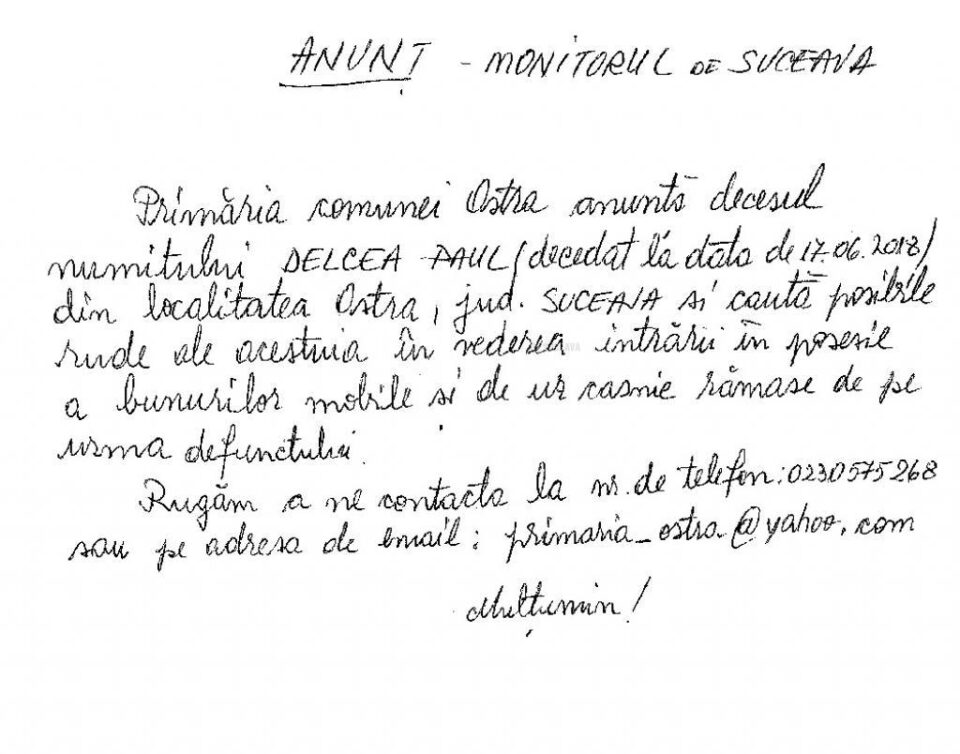 ANUNȚ - MONITORUL DE SUCEAVA
Primăria comunei Ostra anuntă decesul
numitului DELCEA PAUL (decedat la data de 17.06.2018)
din localitatea Ostra, jud. SUCEAVA si caută posibile
rude ale acestuia în vederea intrării în posesie
a bunurilor mobile și de uz casnic rămase de pe
urma defunctului.
Rugăm a ne contacta la nr. de telefon: 0230575268
sau pe adresa de email: primaria_ostra@yahoo.com
Mulțumim!